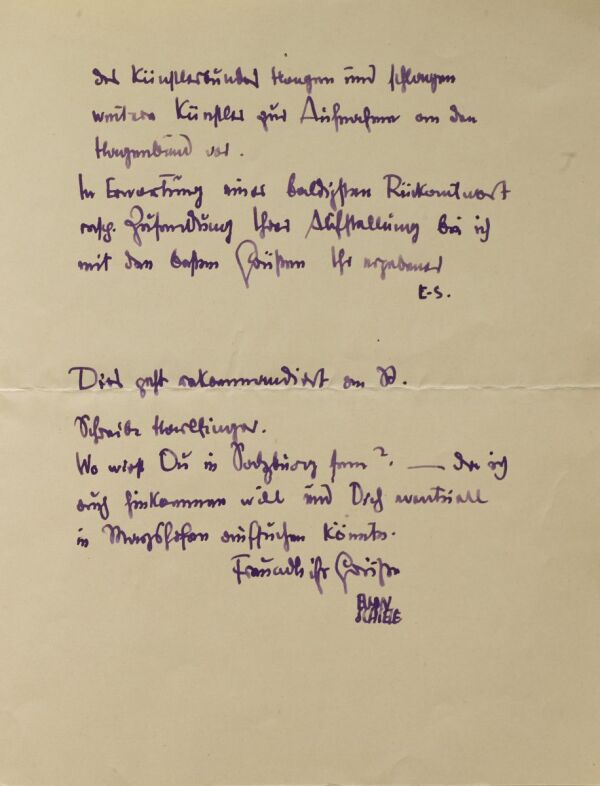 des Künstlerbundes Haagen und schlagen
weitere Künstler zur Aufnahme an den
Hagenbund vor.
In Erwartung einer baldigsten Rückantwort
resp. Zusendung Ihrer Aufstellung bin ich
mit den besten Grüßen Ihr ergebener
E-S.
Dies geht rekommandiert an
Schreibe Harlfinger.
Wo wirst Du in Salzburg sein? — da ich
auch hinkommen will und Dich eventuell
in aufsuchen könnte.
Freundliche Grüße
EGON
SCHIELE